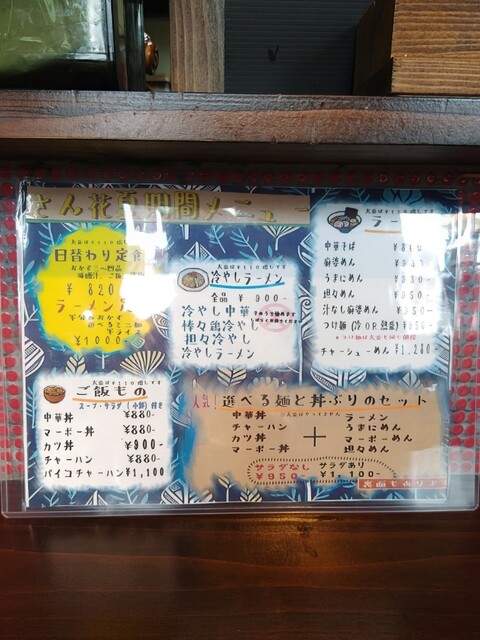 さん花夏期間メニュー
大盛は¥110増しです
日替わり定食
おかず二~四品
味噌汁、ご飯
¥820
ラーメン定
半分のおかず
選べるミニ麺
半ライス
¥1000-
大盛は¥110増しです
冷やしラーメン
全品 ¥900-
冷やし中華
棒々鶏冷やし
担々冷やし
冷やしラーメン
大盛は¥110増しです
ラー
中華そば
麻婆めん
うまにめん
担々めん
汁なし麻婆めん
つけ麺(冷OR熱盛)
チャーシューめん ¥1,280-
大盛は¥110増しです
ご飯もの
スープ・サラダ(小鉢)付き
中華丼 ¥880-
マーボー丼 ¥880-
カツ丼 ¥900-
チャーハン ¥880-
パイコチャーハン ¥1,100
人気! 選べる麺と丼ぶりのセット
中華丼
チャーハン
カツ丼
マーボー丼
+
ラーメン
うまにめん
マーボーめん
担々めん
サラダなし ¥950-
サラダあり ¥1,100-
裏面もあります